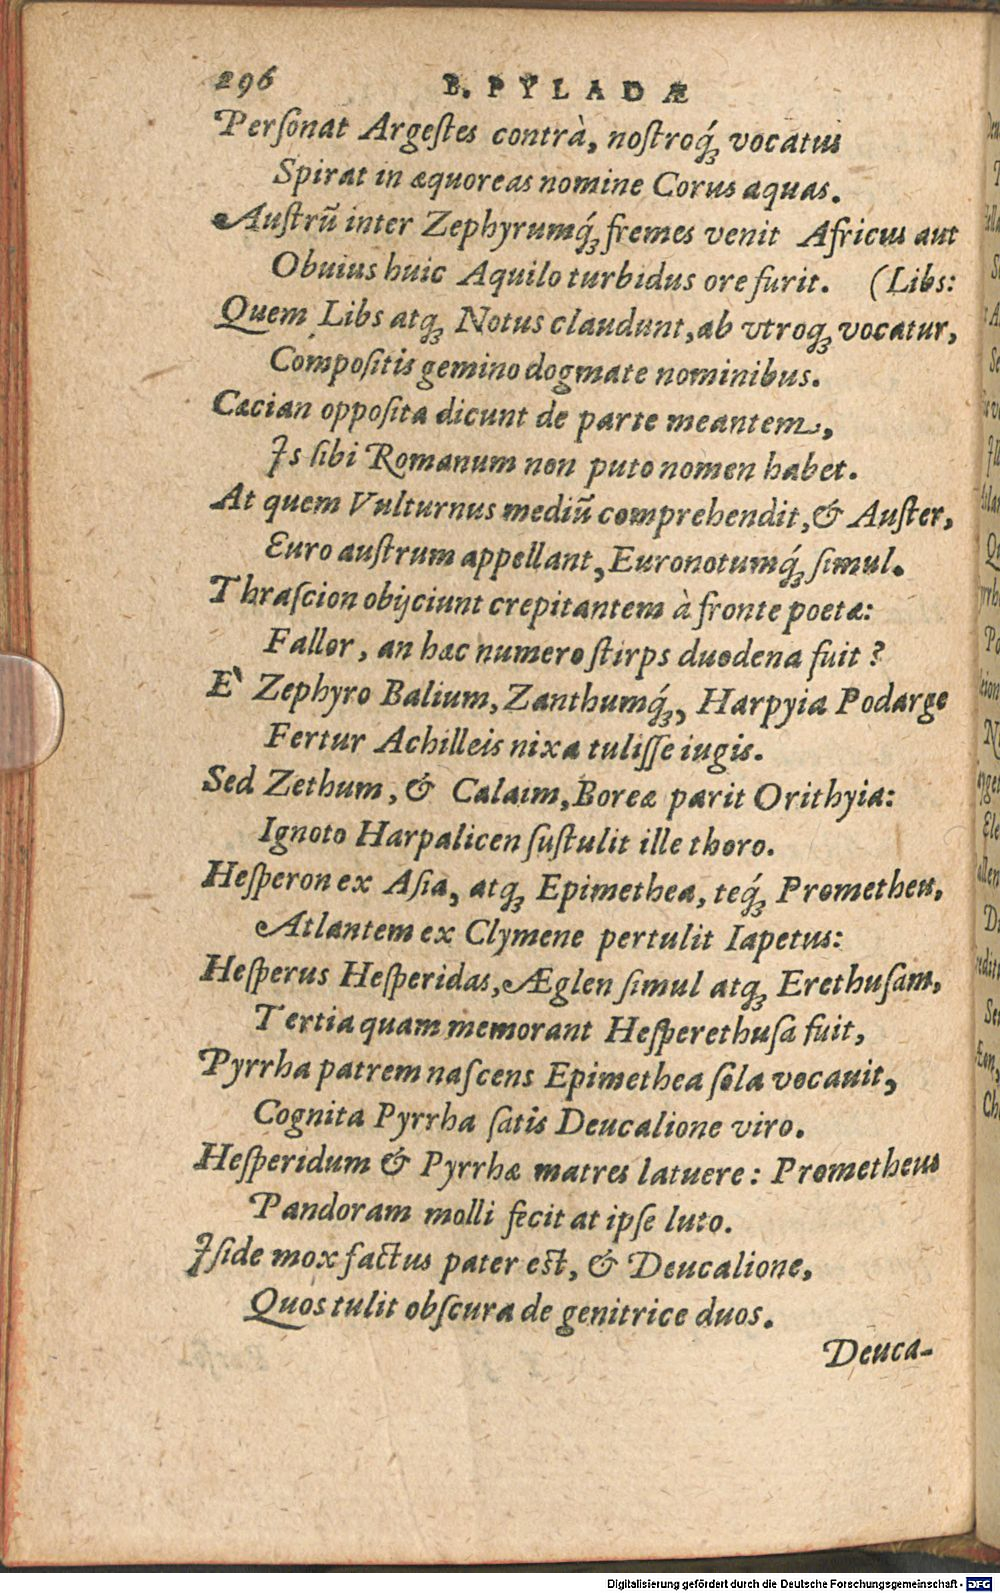 296 B. PYLADÆ
Perſonat Argeſtes contrà, noſtroq́ꝫ vocatus
Spirat in æquoreas nomine Corus aquas.
Auſtrū inter Zephyrumq́ꝫ fremẽs venit Africus aut
Obuius huic Aquilo turbidus ore furit. (Libs:
Quem Libs atqꝫ Notus claudunt, ab vtroqꝫ vocatur,
Compoſitis gemino dogmate nominibus.
Cæcian oppoſita dicunt de parte meantem,
Is ſibi Romanum non puto nomen habet.
At quem Vulturnus mediū comprehendit, & Auſter,
Euro auſtrum appellant, Euronotumq́ꝫ ſimul.
Thraſcion obijciunt crepitantem à fronte poetæ:
Fallor, an hæc numero ſtirps duodena fuit?
E` Zephyro Balium, Zanthumq́ꝫ, Harpyia Podarge
Fertur Achilleis nixa tuliſſe iugis.
Sed Zethum, & Calaim, Boreæ parit Orithyia:
Ignoto Harpalicen ſuſtulit ille thoro.
Heſperon ex Aſia, atqꝫ Epimethea, teq́ꝫ Prometheu,
Atlantem ex Clymene pertulit Iapetus:
Heſperus Heſperidas, Æglen ſimul atqꝫ Erethuſam,
Tertia quam memorant Heſperethuſa fuit,
Pyrrha patrem naſcens Epimethea ſola vocauit,
Cognita Pyrrha ſatis Deucalione viro.
Heſperidum & Pyrrhæ matres latuere: Prometheus
Pandoram molli fecit at ipſe luto.
Iſide mox factus pater eſt, & Deucalione,
Quos tulit obſcura de genitrice duos.
Deuca-
Digitalisierung gefördert durch die Deutsche Forschungsgemeinschaft - DFG